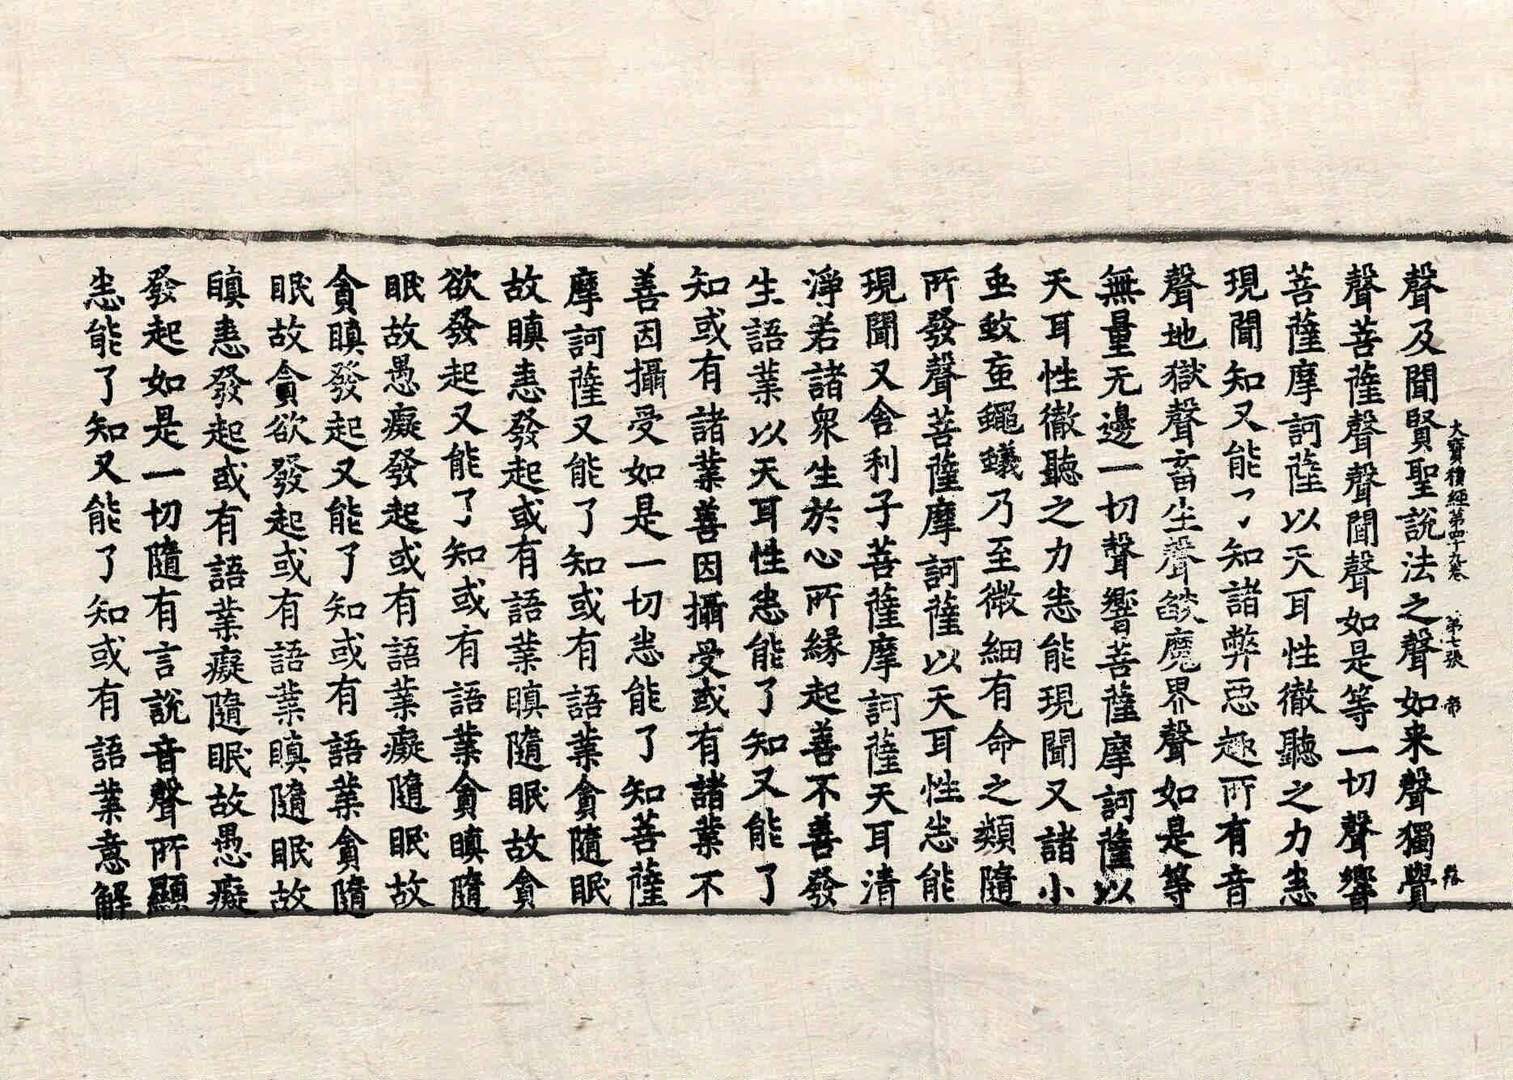 大寶積經第四十九卷　第七張　帝
聲及聞賢聖說法之聲如来聲獨覺
聲菩薩聲聲聞聲如是等一切聲響
菩薩摩訶薩以天耳性徹聽之力悉
現聞知又能了知諸弊惡趣所有音
聲地獄聲畜生聲燄魔界聲如是等
無量无邊一切聲響菩薩摩訶薩以
天耳性徹聽之力悉能現聞又諸小
虫蚊䖟蠅蟻乃至微細有命之類隨
所發聲菩薩摩訶薩以天耳性悉能
現聞又舍利子菩薩摩訶薩天耳清
淨若諸衆生於心所緣起善不善發
生語業以天耳性悉能了知又能了
知或有諸業善因攝受或有諸業不
善因攝受如是一切悉能了知菩薩
摩訶薩又能了知或有語業貪隨眠
故瞋恚發起或有語業瞋隨眠故貪
欲發起又能了知或有語業貪瞋隨
眠故愚癡發起或有語業癡隨眠故
貪瞋發起又能了知或有語業貪隨
眠故貪欲發起或有語業瞋隨眠故
瞋恚發起或有語業癡隨眠故愚癡
發起如是一切隨有言說音聲所顯
悉能了知又能了知或有語業意解